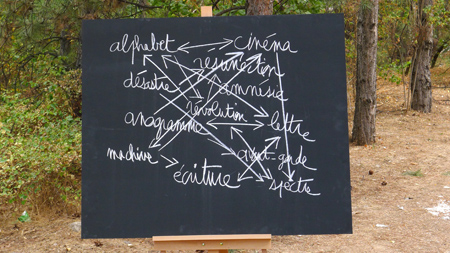 alphabet cinéma
résurrection
désastre amnésie
révolution
anagramme lettre
machine avant-garde
écriture spectre